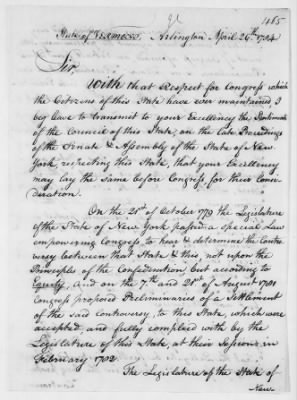 1465
State of Vermont, Arlington April 26th 1784
Sir,
With that Respect for Congress which
the Citizens of this State have ever maintained I
beg leave to transmit to your Excellency the Sentiments
of the Council of this State, on the late Proceedings
of the Senate & Assembly of the State of New
York, respecting this State, that your Excellency
may lay the Same before Congress for their Consi
deration.
On the 21st of October 1779 the Legislature
of the State of New York passed a special Law
empowering Congress to hear & determine the Contro
versy between that State & this, not upon the
Principles of the Confederation but according to
Equity, and on the 7th and 21st of August 1781
Congress proposed Preliminaries of a Settlement
of the said controversy, to this State, which were
accepted, and fully complied with by the
Legislature of this State, at their Sessions in
February 1782
The Legislature of the State of
New